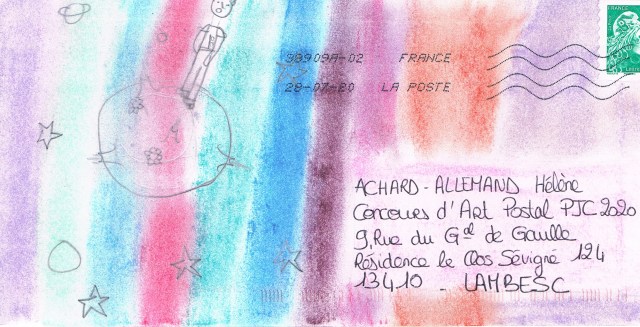 38909A-02 FRANCE
28-07-20 LA POSTE
FRANCE
ACHARD-ALLEMAND Hélène
Concours d'Art Postal PJC 2020
9, Rue du Gal de Gaulle
Résidence le Clos Sévigné 124
13410 - LAMBESC